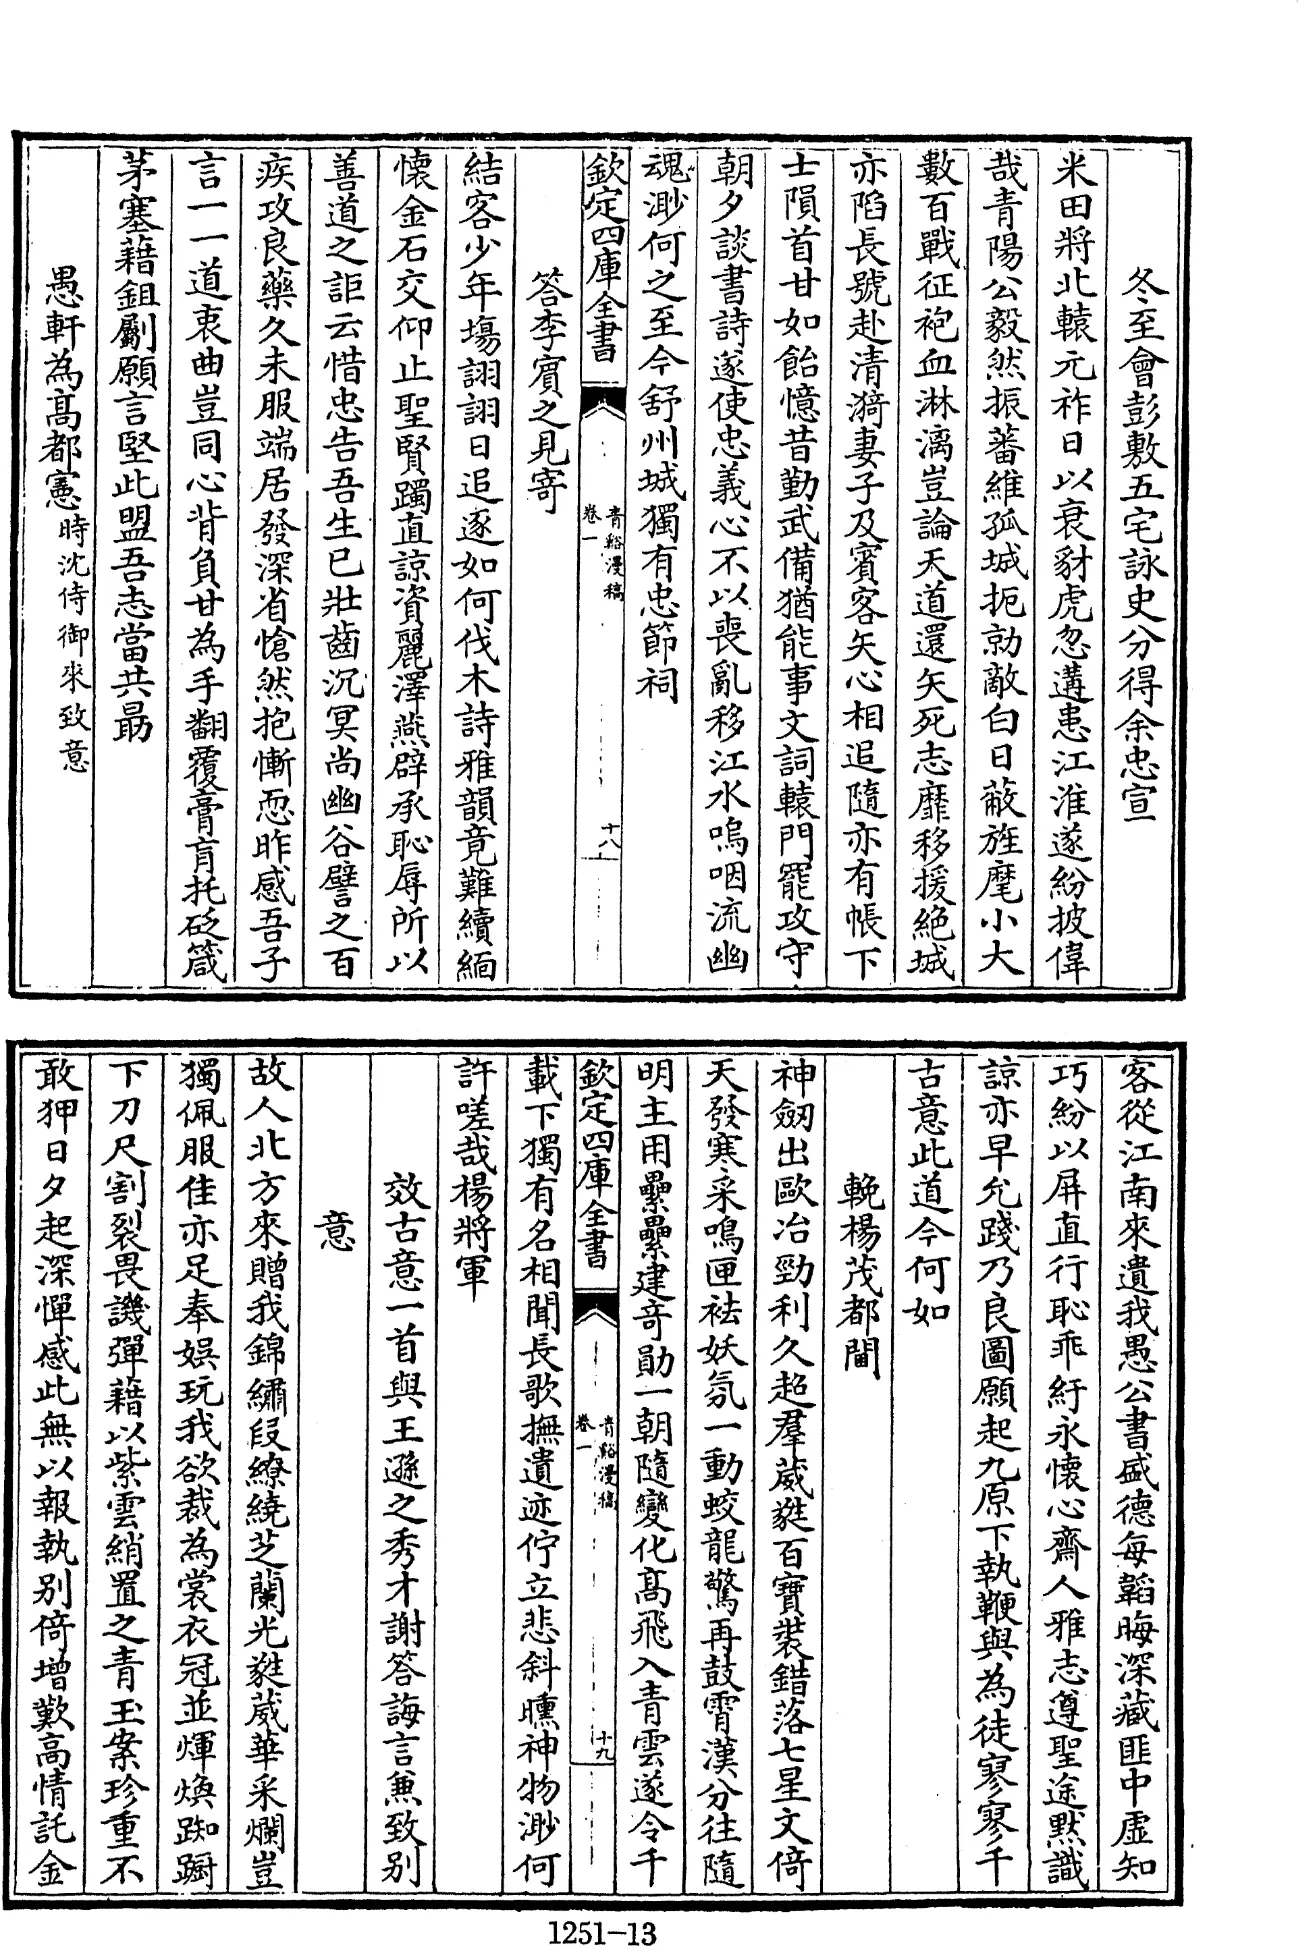 冬至會彭敷五宅詠史分得余忠宣
米田將北轅元祚日以衰豺虎忽遘患江淮遂紛披偉
哉青陽公毅然振蕃維孤城扼勍敵白日蔽旌麾小大
數百戰征袍血淋漓豈論天道還矢死志靡移援絕城
亦陷長號赴清漪妻子及賓客矢心相追隨亦有帳下
士隕首甘如飴憶昔勤武備猶能事文詞轅門罷攻守
朝夕談書詩遂使忠義心不以喪亂移江水嗚咽流幽
魂渺何之至今舒州城獨有忠節祠
欽定四庫全書
青谿漫稿
卷一
十八
答李賓之見寄
結客少年塲詡詡日追逐如何伐木詩雅韻竟難續緬
懷金石交仰止聖賢躅直諒資麗澤燕辟承恥辱所以
善道之詎云惜忠告吾生已壯齒沉冥尚幽谷譬之百
疾攻良藥久未服端居發深省愴然抱慚恧昨感吾子
言一一道衷曲豈同心背負甘為手翻覆膏肓托砭箴
茅塞藉鉏劚願言堅此盟吾志當共勗
愚軒為高都憲時沈侍御來致意
客從江南來遺我愚公書盛德每韜晦深藏匪中虛知
巧紛以屏直行恥乖紆永懷心齋人雅志遵聖途默識
諒亦早允踐乃良圖願起九原下執鞭與為徒寥寥千
古意此道今何如
輓楊茂都閫
神劒出歐冶勁利久超羣葳蕤百寶裝錯落七星文倚
天發寒采鳴匣袪妖氛一動蛟龍驚再鼓霄漢分往隨
明主用纍纍建奇勛一朝隨變化高飛入青雲遂令千
欽定四庫全書
青谿漫稿
卷一
十九
載下獨有名相聞長歌撫遺迹佇立悲斜曛神物渺何
許嗟哉楊將軍
效古意一首與王遜之秀才謝答誨言兼致别
意
故人北方來贈我錦繡段繚繞芝蘭光蕤葳華采爛豈
獨佩服佳亦足奉娱玩我欲裁為裳衣冠並煇煥踟蹰
下刀尺割裂畏譏彈藉以紫雲綃置之青玉案珍重不
敢狎日夕起深憚感此無以報執别倍增歎高情託金
1251-13